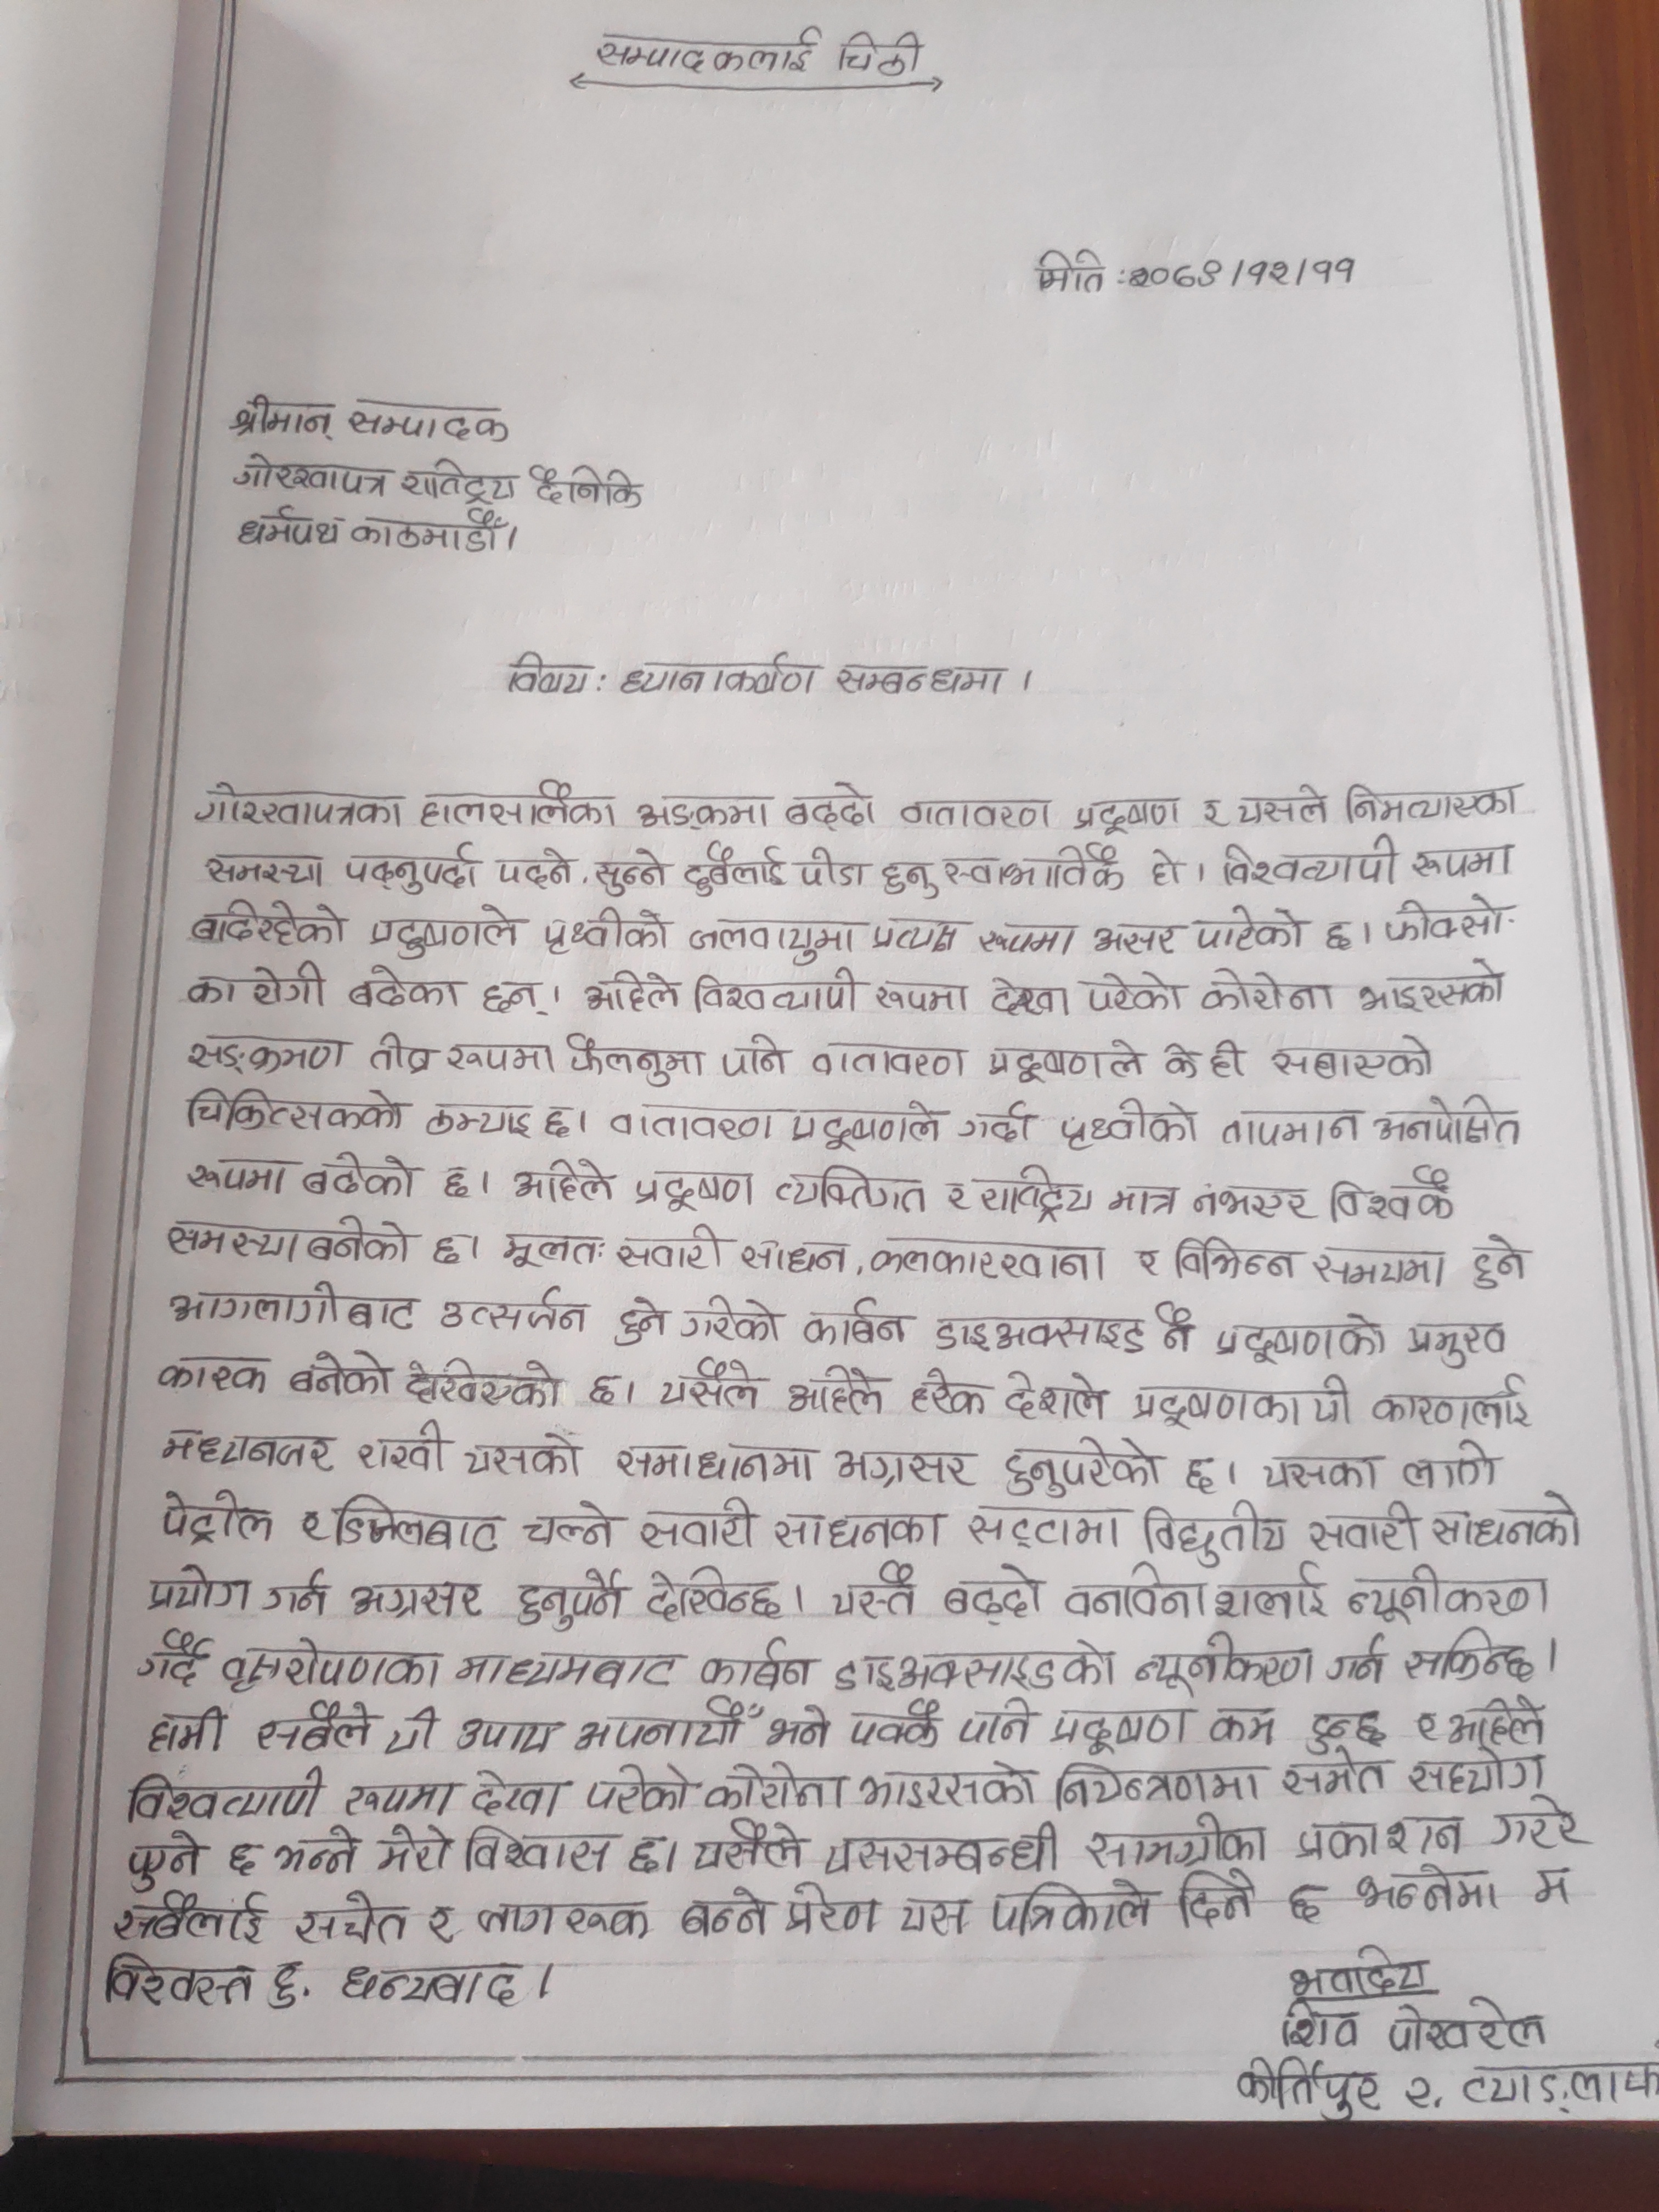 सम्पादकलाई चिठी
मिति :२०७९ /१२/११
श्रीमान् सम्पादक
गोरखापत्र राष्ट्रिय दैनिकि
धर्मपथ काठमाडौँ।
विषय: ध्यानाकर्षण सम्बन्धमा ।
गोरखापत्रका हालसालैका अङ्कमा बढ्दो वातावरण प्रदूषण र यसले निम्त्याएका
समस्या पढ्नुपर्दा पढ्ने, सुन्ने दुबैलाई पीडा हुनु स्वाभाविकै हो। विश्वव्यापी रूपमा
बढिरहेको प्रदुषणले पृथ्वीको जलवायुमा प्रत्यक्ष रूपमा असर पारेको छ। फोक्सो-
का रोगी बढेका छन्। अहिले विश्वव्यापी रूपमा देखा परेको कोरोना भाइरसको
सङ्क्रमण तीब्र रूपमा फैलनुमा पनि वातावरण प्रदूषणले केही सघाएको
चिकित्सकको ठम्याइ छ। वातावरण प्रदूषणले गर्दा पृथ्वीको तापमान अनपेक्षित
रूपमा बढेको छ। अहिले प्रदूषण व्यक्तिगत र राष्ट्रिय मात्र नभएर विश्वकै
समस्या बनेको छ। मूलतः सवारी साधन, कलकारखाना र विभिन्न समयमा हुने
आगलागीबाट उत्सर्जन हुने गरेको कार्बन डाइअक्साइड नै प्रदूषणको प्रमुख
कारक बनेको देखिएको छ। यसैले अहिले हरेक देशले प्रदूषणका यी कारणलाई
मध्यनजर राखी यसको समाधानमा अग्रसर हुनुपरेको छ। यसका लागि
पेट्रोल र डिजेलबाट चल्ने सवारी साधनका सट्टामा विद्युतीय सवारी साधनको
प्रयोग गर्न अग्रसर हुनुपर्ने देखिन्छ। यस्तै बढ्दो वनविनाशलाई न्यूनीकरण
गर्दै वृक्षरोपणका माध्यमबाट कार्बन डाइअक्साइडको न्यूनीकरण गर्न सकिन्छ।
हामी सबैले यी उपाय अपनायौँ भने पक्कै पनि प्रदूषण कम हुन्छ र अहिले
विश्वव्यापी रूपमा देखा परेको कोरोना भाइरसको नियन्त्रणमा समेत सहयोग
पुग्ने छ भन्ने मेरो विश्वास छ। यसैले यससम्बन्धी सामग्रीका प्रकाशन गरेर
सबैलाई सचेत र जागरूक बन्ने प्रेरणा यस पत्रिकाले दिने छ भन्नेमा म
विश्वस्त छु. धन्यबाद।
भवदीय
शिव पोखरेल
कीर्तिपुर २,